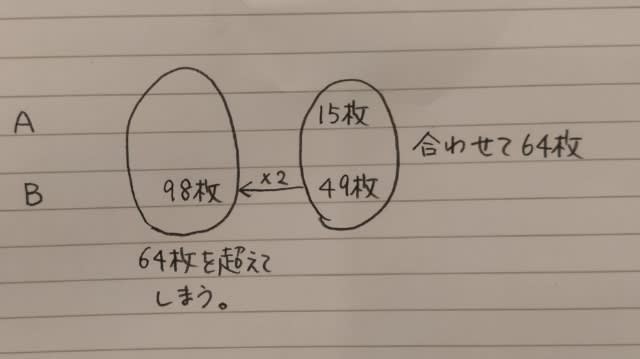 A
15枚
合わせて64枚
B
98枚
×2
49枚
64枚を超えて
しまう。